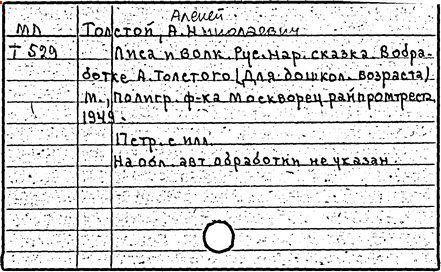 Алексей
МЛ Толстой, А. Николаевич
Т 529 Лиса и волк. Рус. нар. сказка. В обра-
ботке А. Толстого. (Для дошкол. возраста)
М., Полигр. ф-ка Москворец. райпромтреста,
1949.
17 стр. с илл.
На обл. авт. обработки не указан.